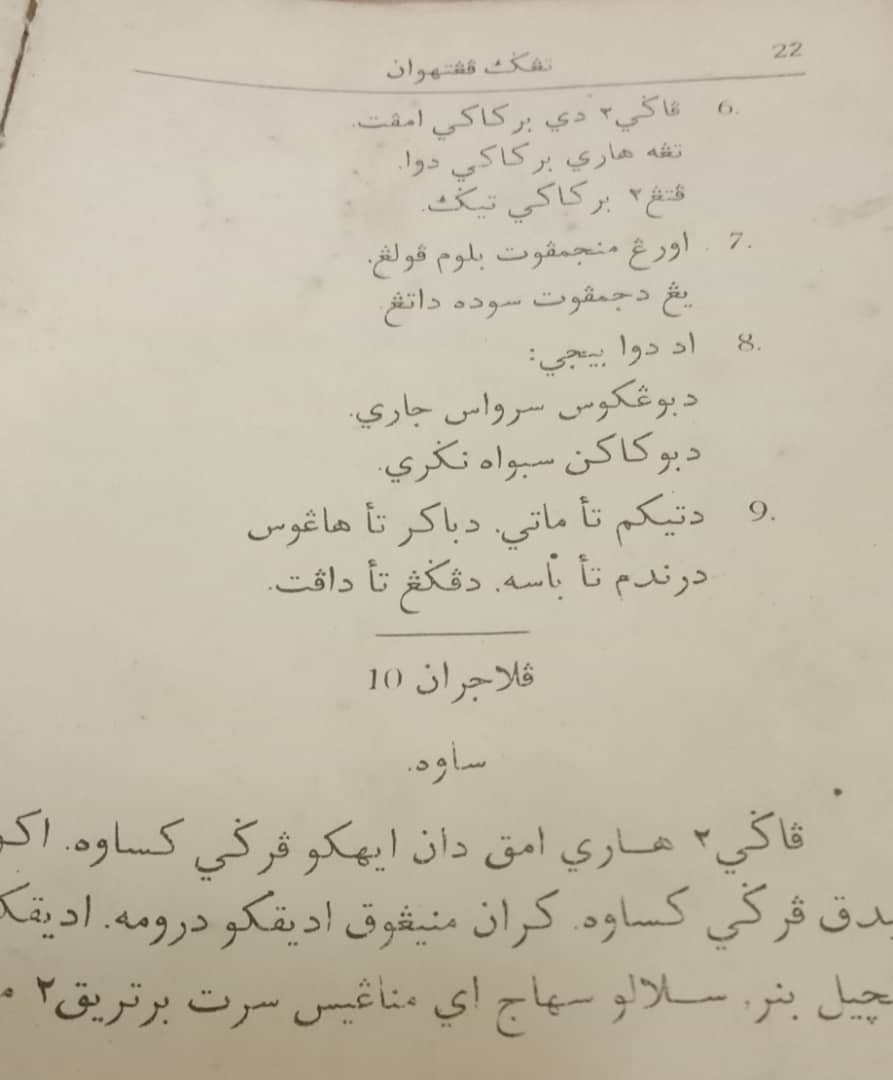 تڠݢ ڤڠتهوان 22
6. ڤاݢي٢ دي برکاکي امڤت.
تڠه هاري برکاکي دوا.
ڤتڠ٢ برکاکي تيݢ.
7. اورڠ منجمڤوت بلوم ڤولڠ.
يڠ دجمڤوت سوده داتڠ.
8. اد دوا بيجي:
دبوڠکوس سرواس جاري.
دبوکاکن سبواه نݢري.
9. دتيکم تأ ماتي. دباکر تأ هاڠوس
درندم تأ باسه. دڤݢڠ تأ داڤت.
ڤلاجران 10
ساوه.
ڤاݢي٢ هاري امق دان ايهکو ڤرݢي کساوه. اکو
ڤرݢي کساوه. کران منيڠوق اديقکو درومه. اديقکو
کچيل بنر. سلالو سهاج اي مناڠيس سرت برتريق٢